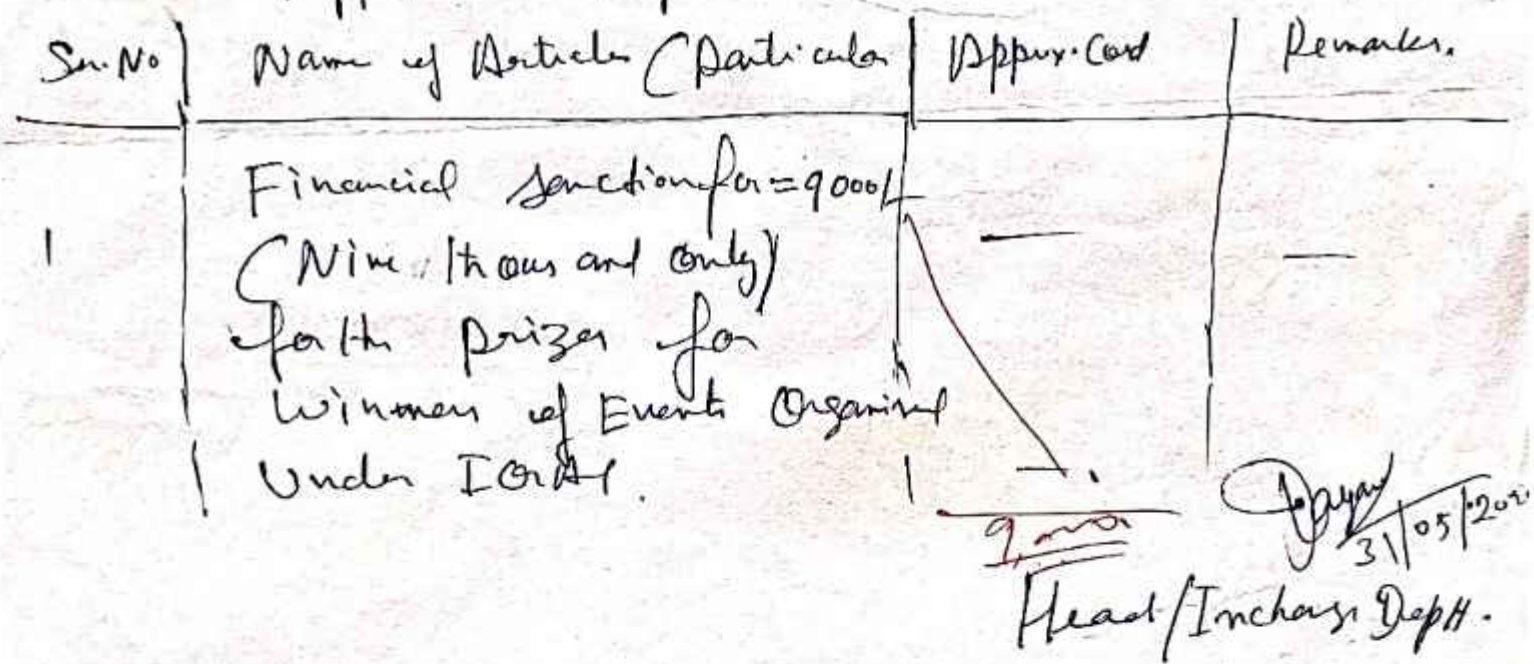 Sr. No Name of Articles (Particular Approx. Cost Remarks.
1 Financial Sanction for = 9000/-
(Nine thousand only)
for the prizes for
Winners of Events Organised
Under
9,000
31/05/202
Head/Incharge Deptt.